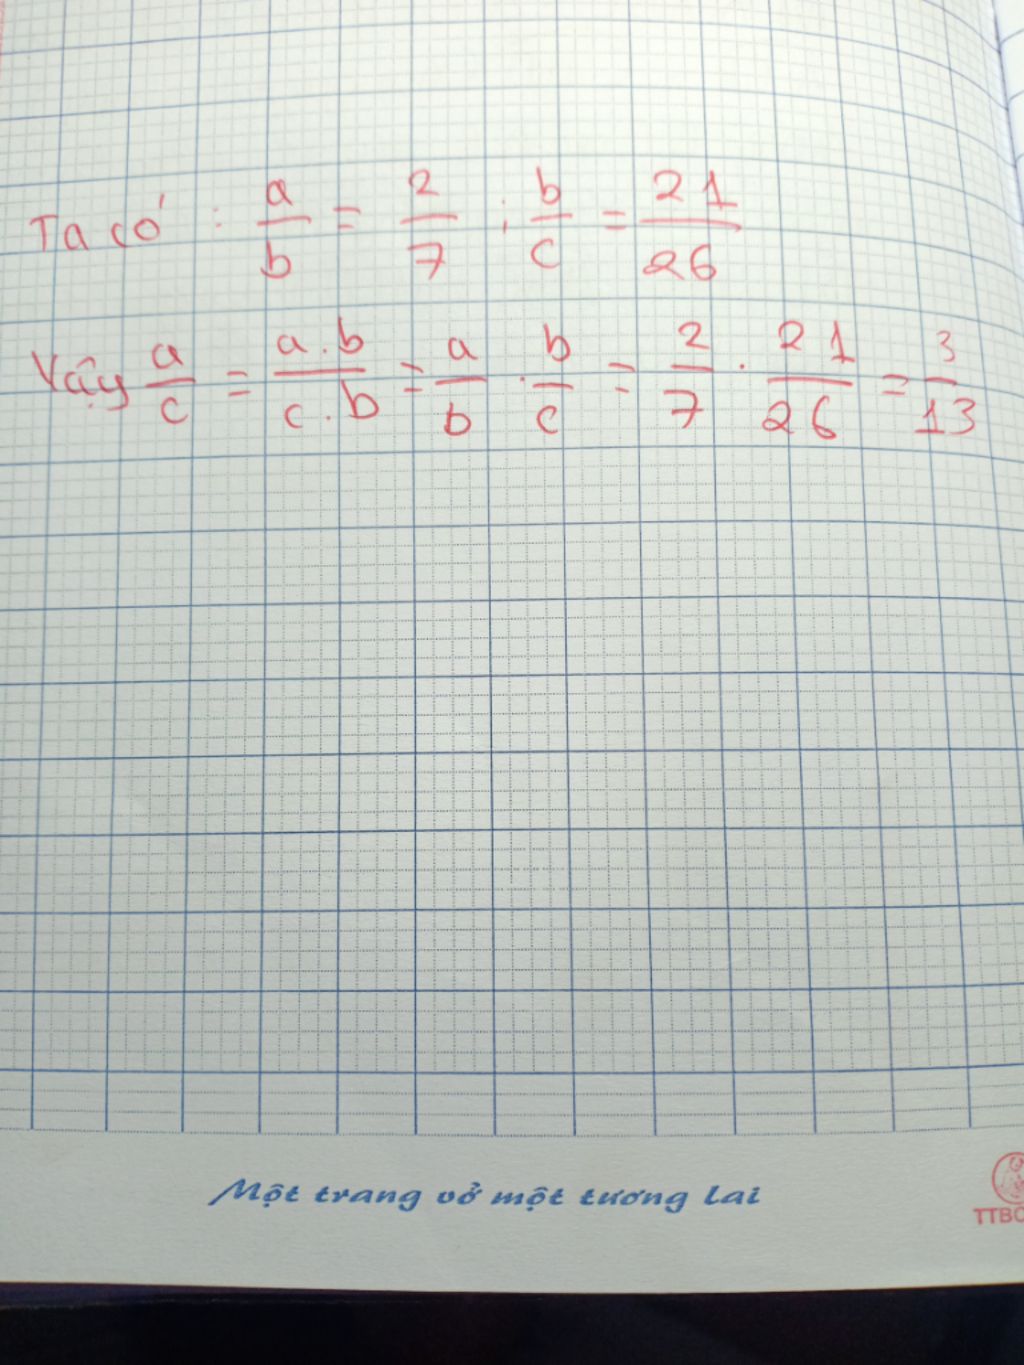 Ta có : a/b = 2/7 ; b/c = 21/26
Vậy a/c = a.b/c.b = a/b . b/c = 2/7 . 21/26 = 3/13
Một trang vở một tương lai